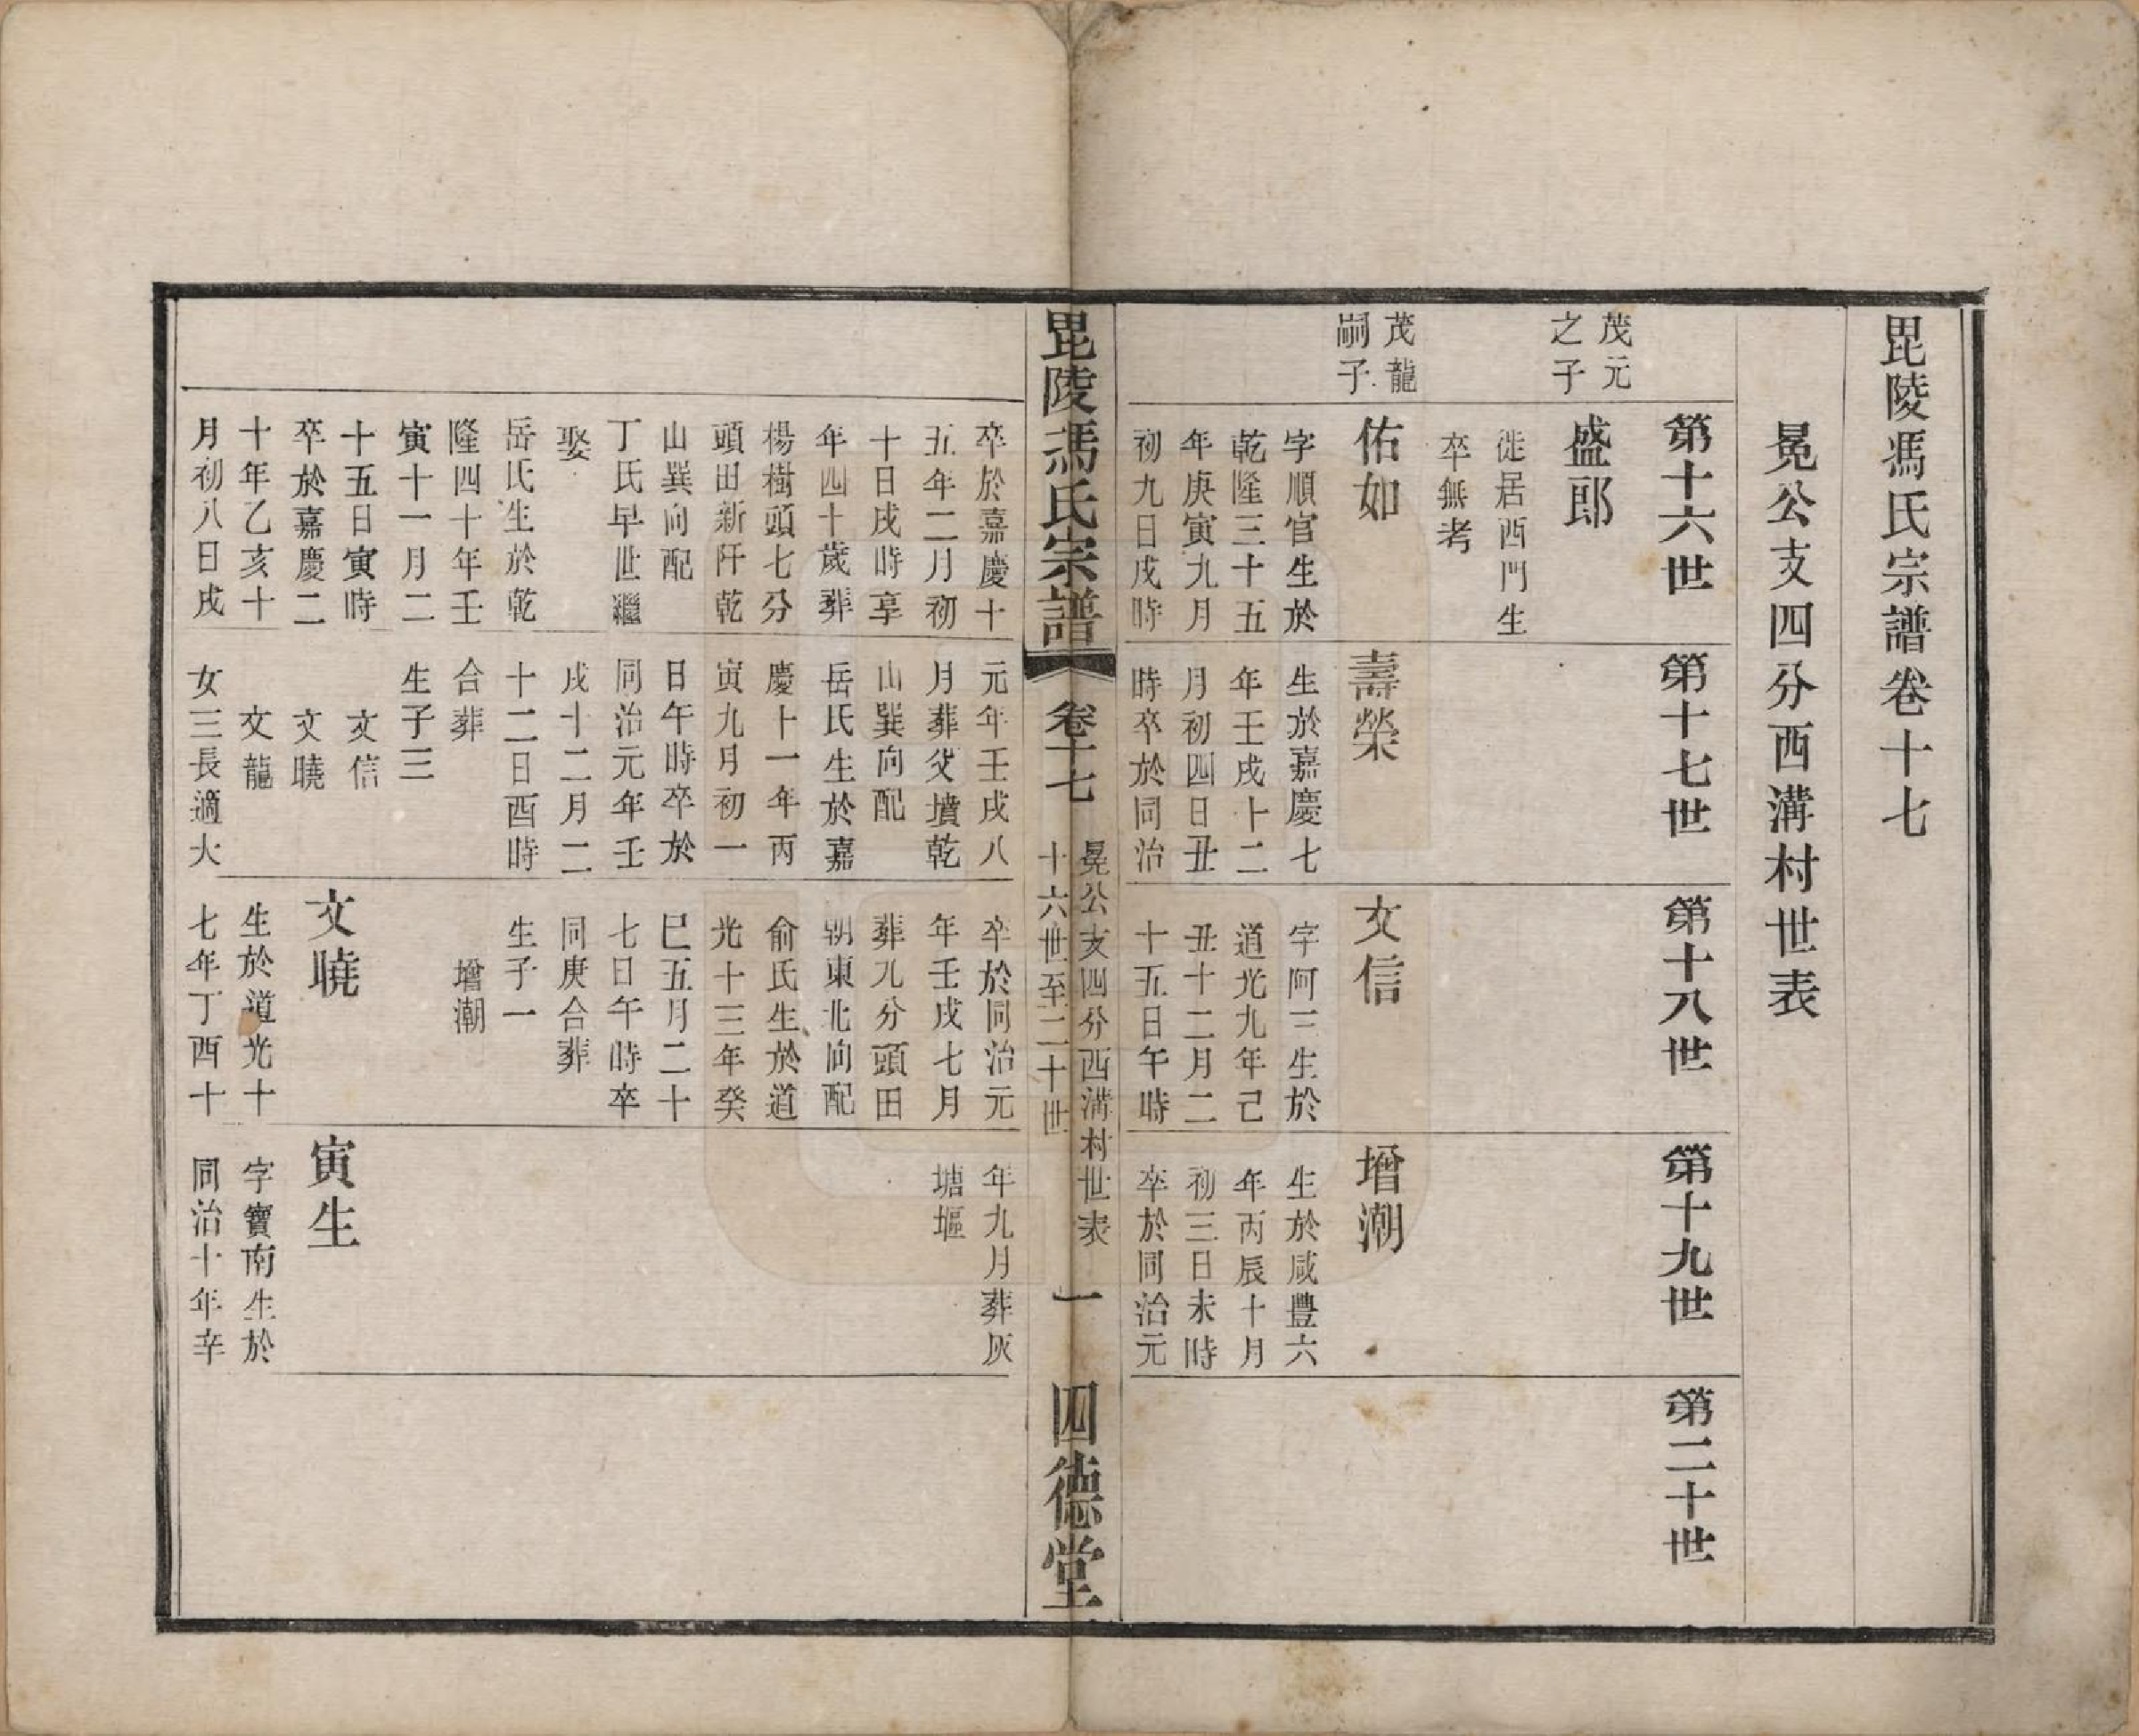 毘陵馮氏宗譜卷十七
冕公支四分西溝村世表
第十六世
第十七世
第十八世
第十九世
第二十世
茂元
之子
盛郎
徙居西門生
卒無考
茂龍
嗣子
佑如
字順官生於
乾隆三十五
年庚寅九月
初九日戌時
壽榮
生於嘉慶七
年壬戌十二
月初四日丑
時卒於同治
文信
字阿三生於
道光九年己
丑十二月二
十五日午時
增潮
生於咸豐六
年丙辰十月
初三日未時
卒於同治元
毘陵馮氏宗譜
卷十七
冕公支四分西溝村世表
十六世至二十世
一
四德堂
卒於嘉慶十
五年二月初
十日戌時享
年四十歲葬
楊樹頭七分
頭田新阡乾
山巽向配
丁氏早世繼
娶
岳氏生於乾
隆四十年壬
寅十一月二
十五日寅時
卒於嘉慶二
十年乙亥十
月初八日戌
元年壬戌八
月葬父墳乾
山巽向配
岳氏生於嘉
慶十一年丙
寅九月初一
日午時卒於
同治元年壬
戌十二月二
十二日酉時
合葬
生子三
文信
文曉
文龍
女三長適大
卒於同治元
年壬戌七月
葬九分頭田
朝東北向配
俞氏生於道
光十三年癸
巳五月二十
七日午時卒
同庚合葬
生子一
增潮
文曉
生於道光十
七年丁酉十
年九月葬灰
塘塸
寅生
字寶南生於
同治十年辛